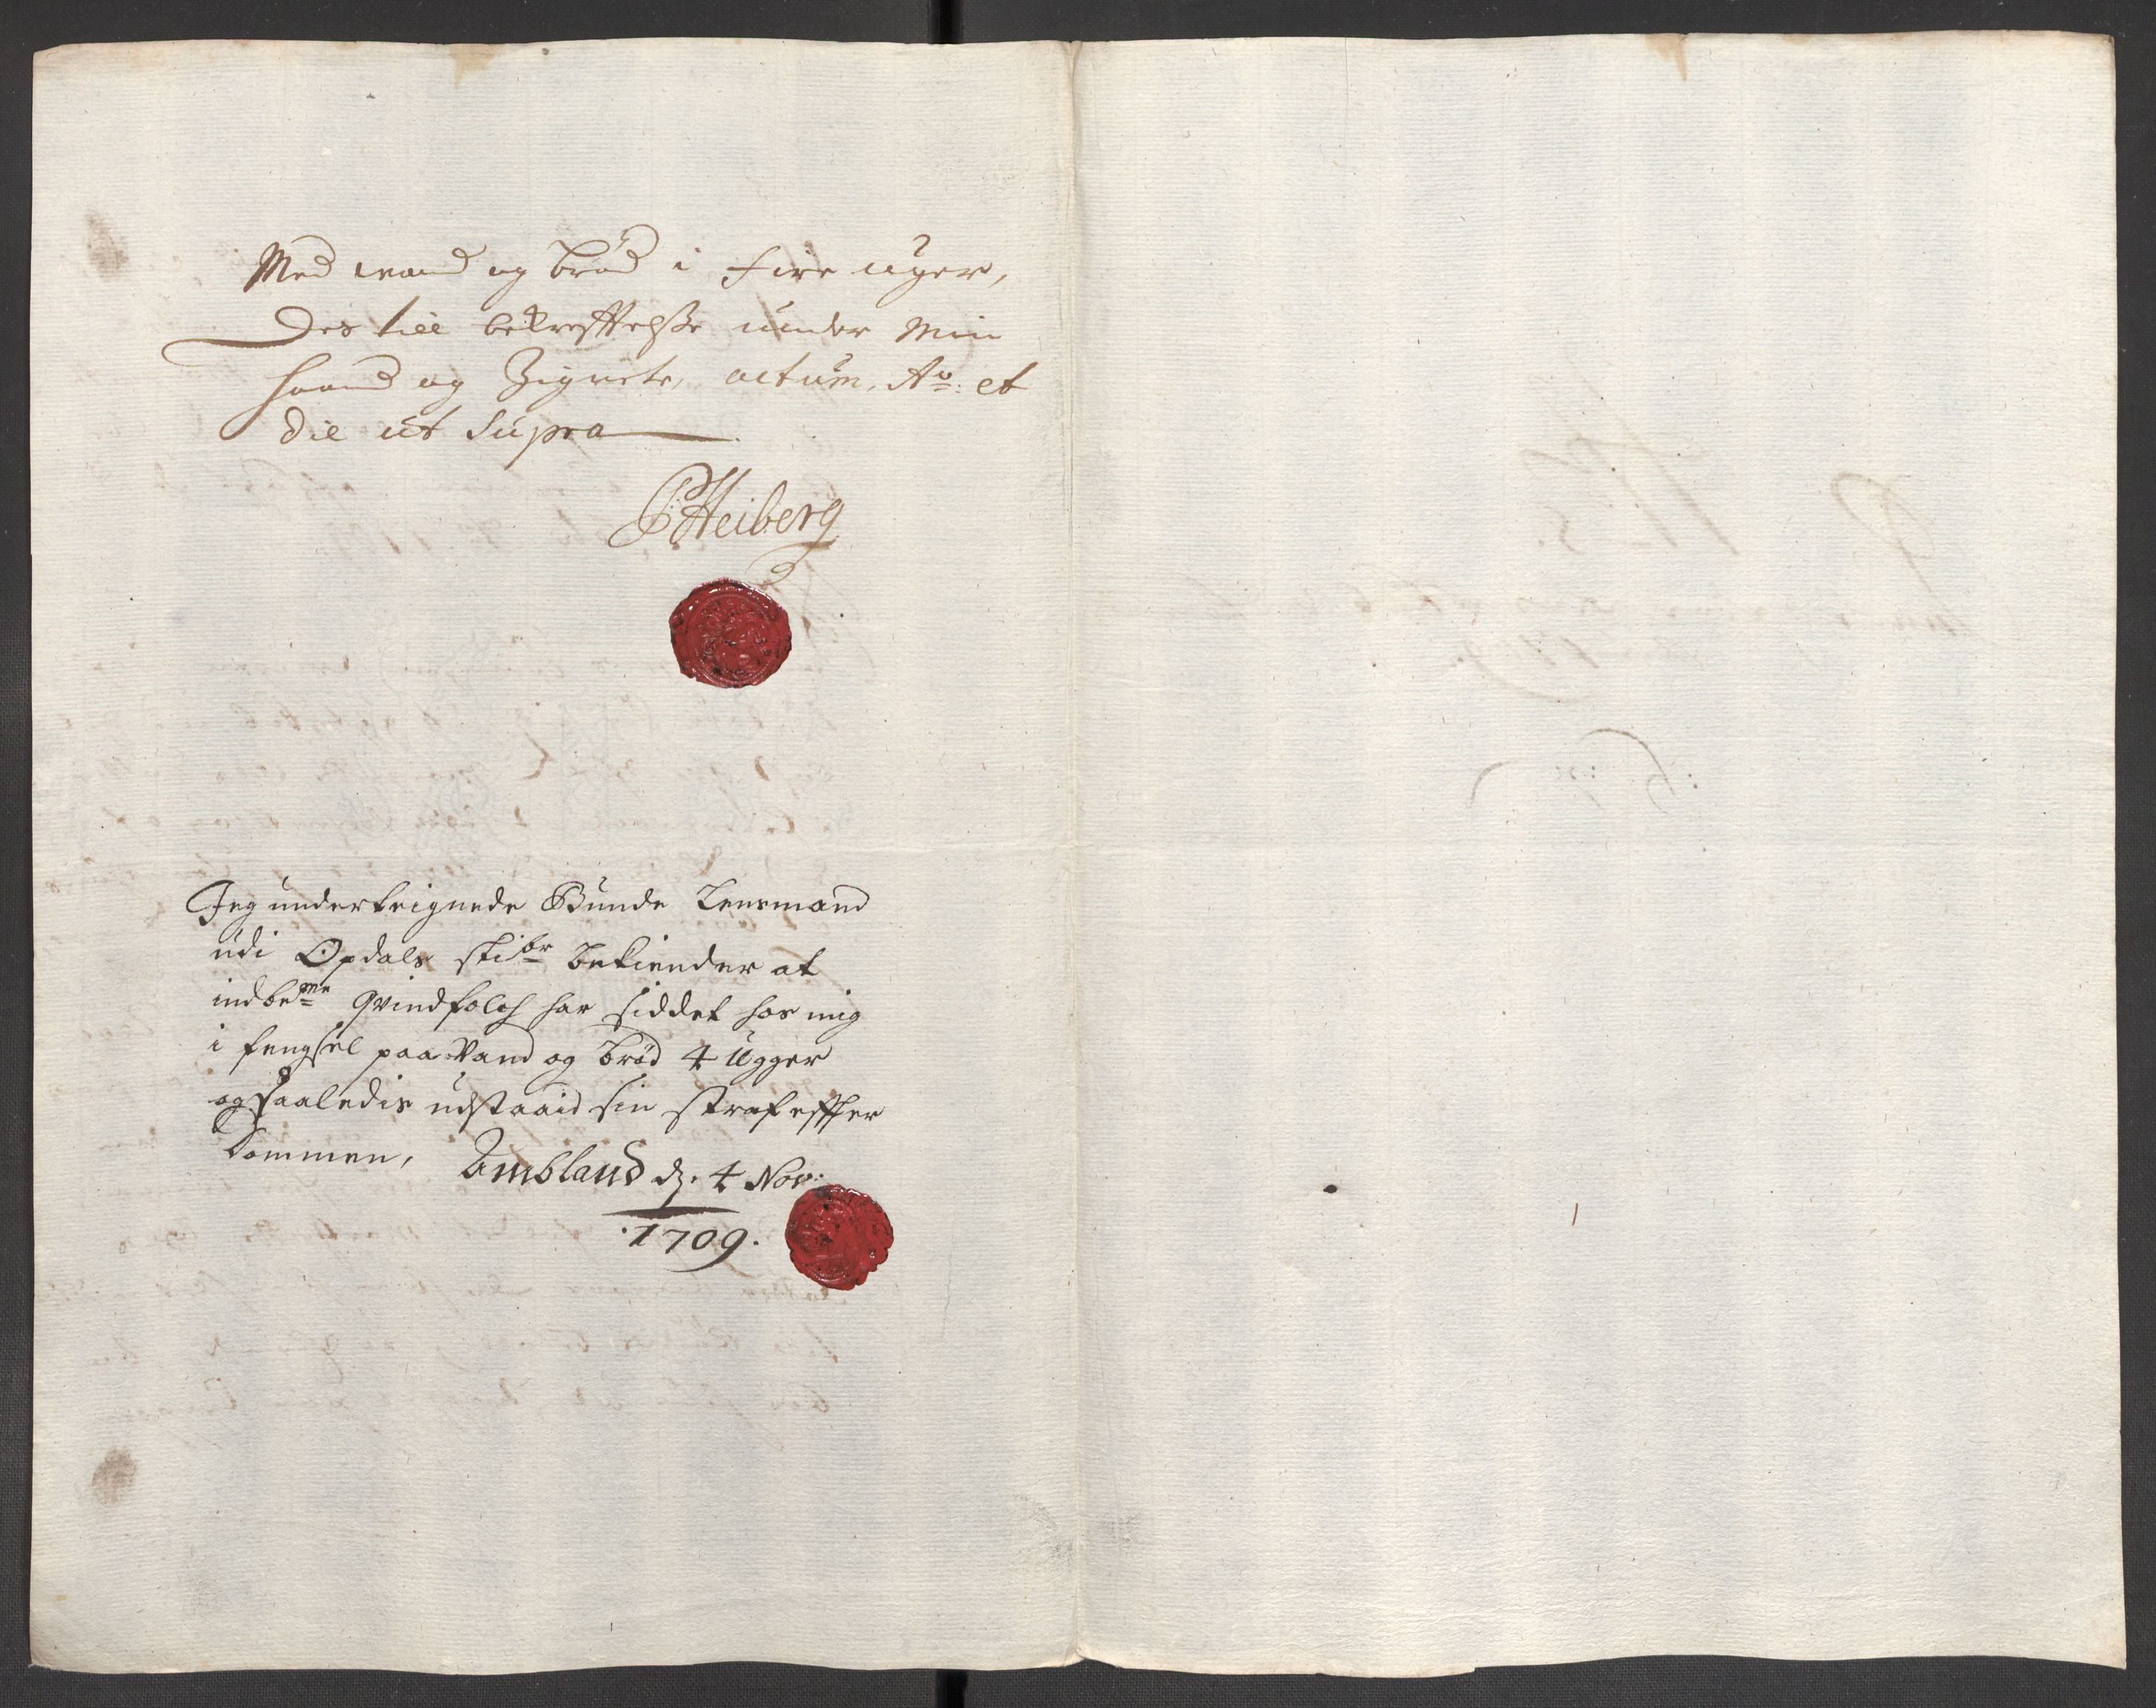 Med wand og brød i fire uger,
Des till bekrefftelsse under Min
haand og Zignete, actum, Ao: et
die ut supra
P Heiberg
Jeg underteignede Bunde Lensmand
udi Opdals skibr bekiender at
indbemte Qvindfolch har siddet hos mig
i fengsel paa Vand og brød 4 Ugger
og saaledis udstaaid sin straf effter
Dommen, Ambland d. 4 Nov:
1709.